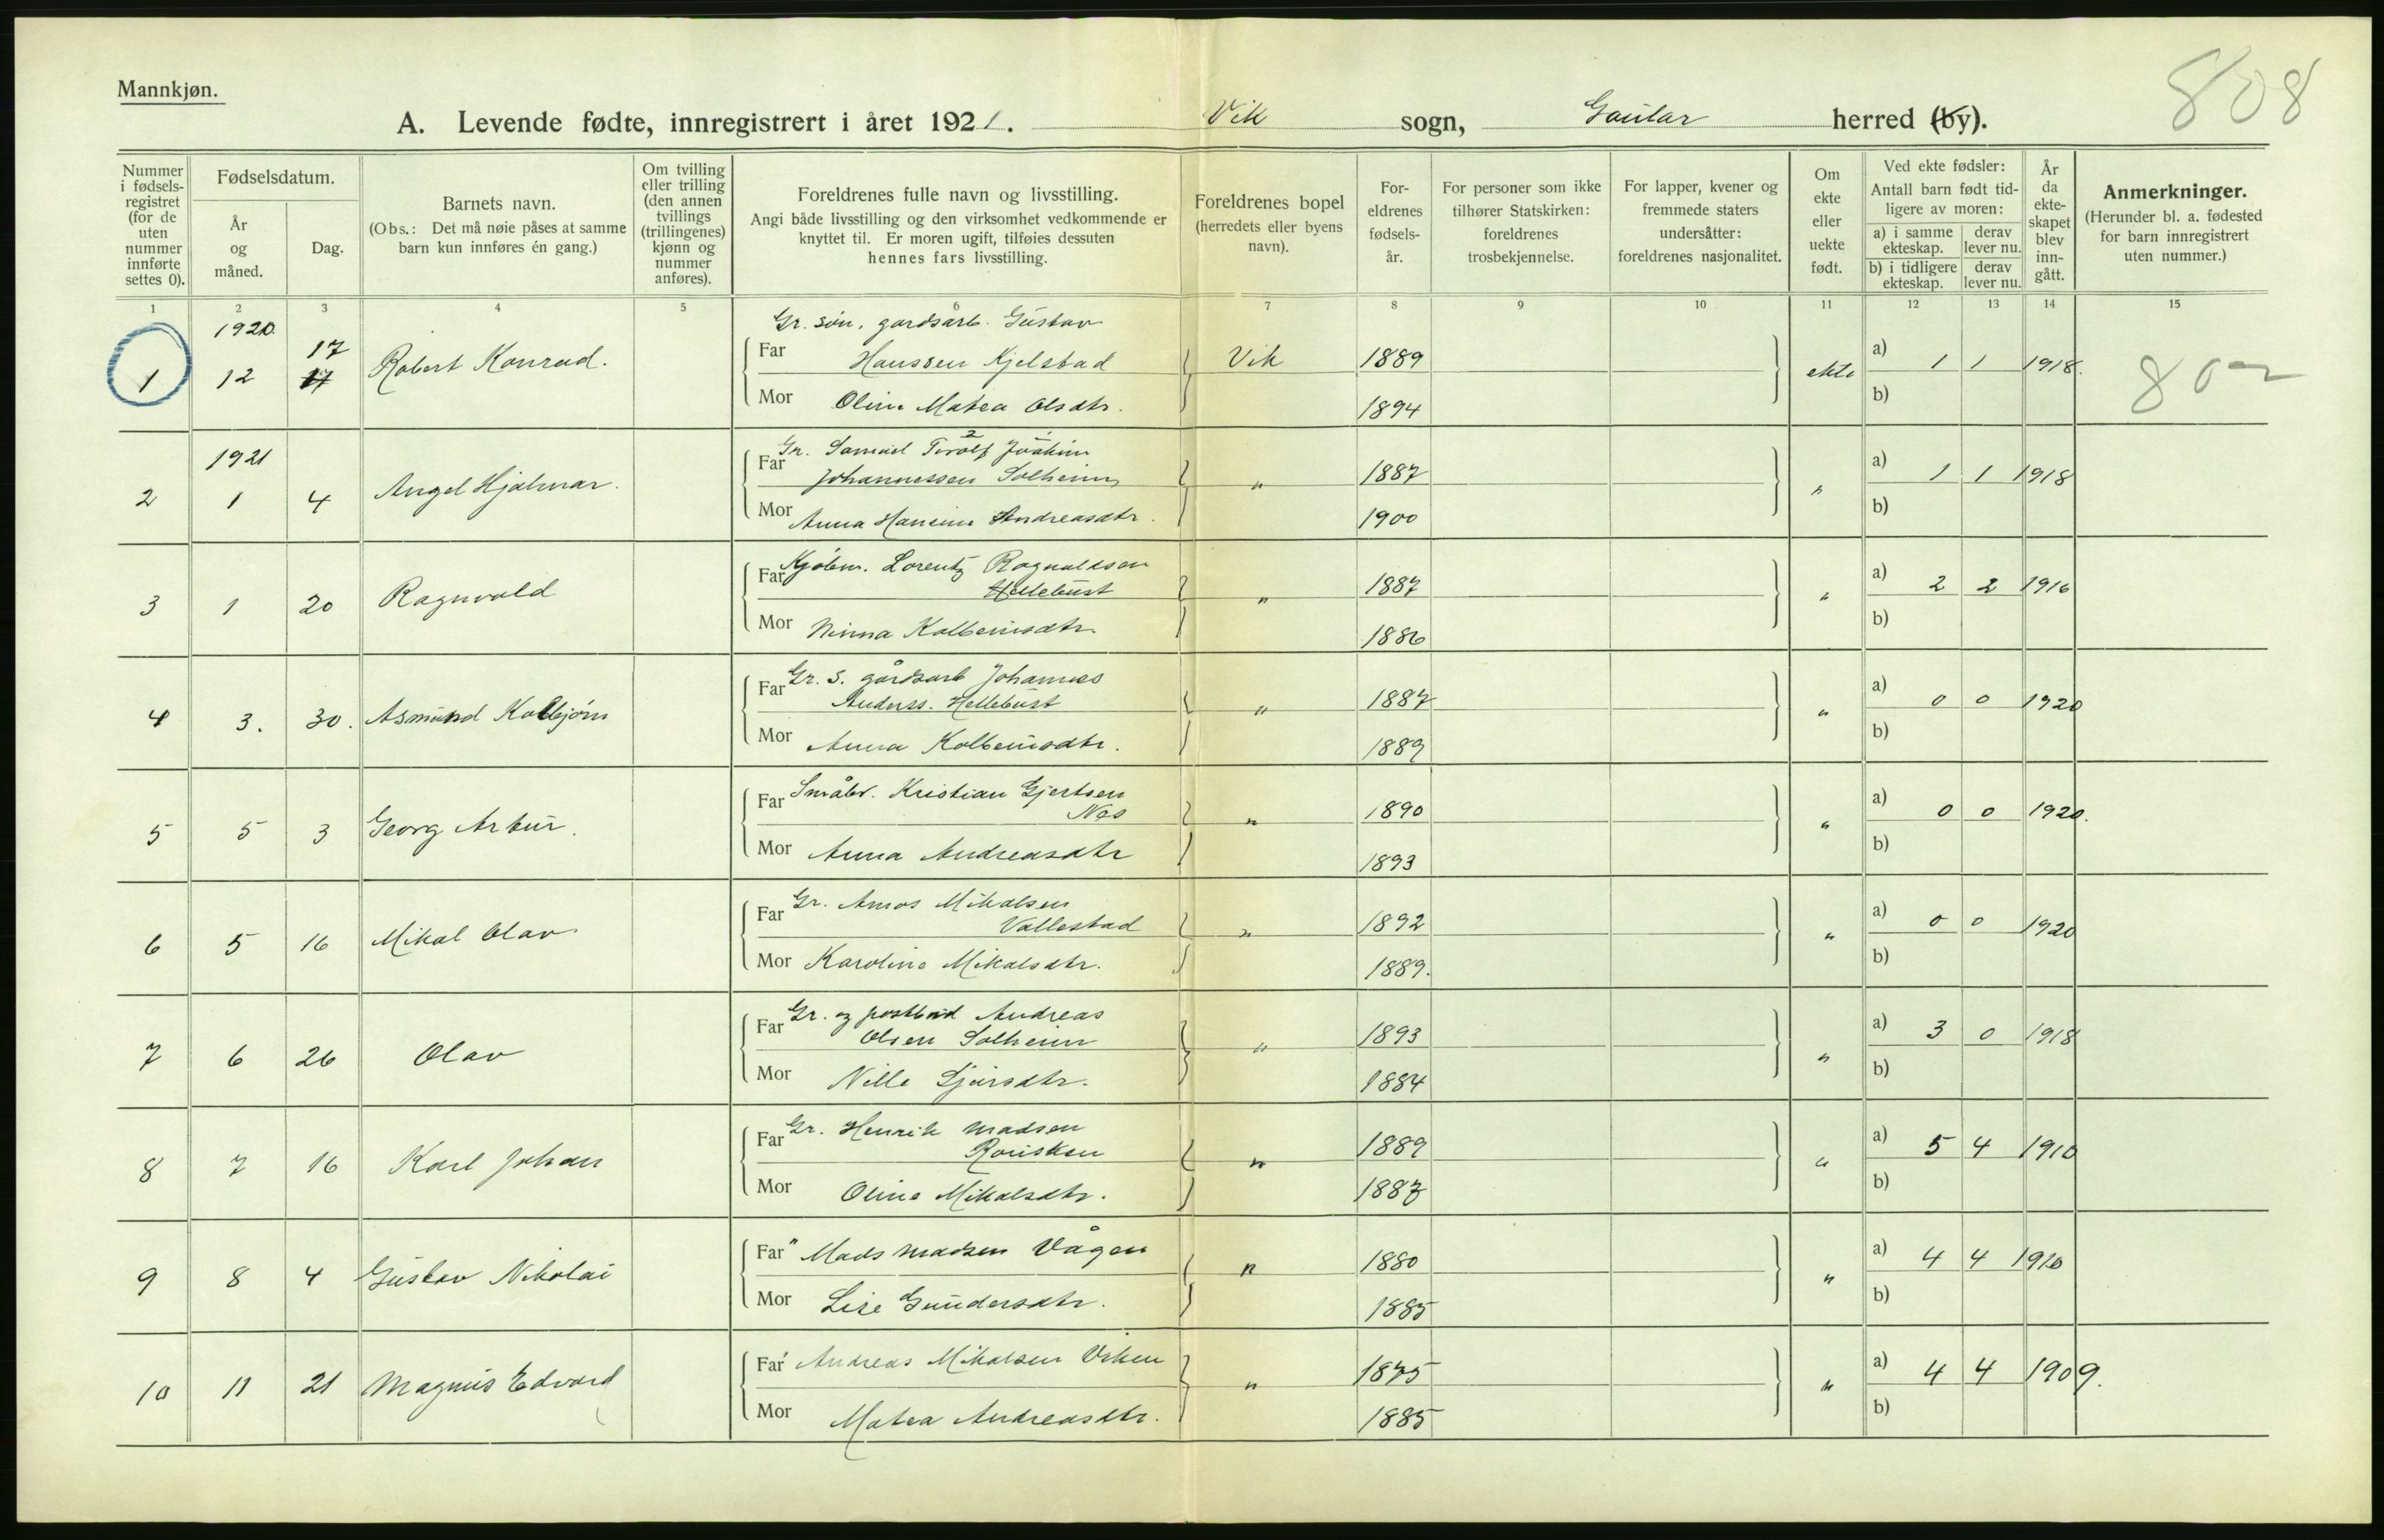 808
Mannkjøn.
A. Levende fødte, innregistrert i året 1921. Vik sogn, Gaular herred (by).
Nummer i fødsels-registret (for de uten nummer innførte settes 0).
Fødselsdatum.
År og måned.
Dag.
Barnets navn.
(Obs.: Det må nøie påses at samme barn kun innføres én gang.)
Om tvilling eller trilling (den annen tvillings (trillingenes) kjønn og nummer anføres).
Foreldrenes fulle navn og livsstilling.
Angi både livsstilling og den virksomhet vedkommende er knyttet til. Er moren ugift, tilføies dessuten hennes fars livsstilling.
Foreldrenes bopel (herredets eller byens navn).
For-eldrenes fødsels-år.
For personer som ikke tilhører Statskirken: foreldrenes trosbekjennelse.
For lapper, kvener og fremmede staters undersåtter: foreldrenes nasjonalitet.
Om ekte eller uekte født.
Ved ekte fødsler:
Antall barn født tid-ligere av moren:
a) i samme ekteskap. derav lever nu.
b) i tidligere ekteskap. derav lever nu.
År da ekte-skapet blev inn-gått.
Anmerkninger.
(Herunder bl. a. fødested for barn innregistrert uten nummer.)
1 2 3 4 5 6 7 8 9 10 11 12 13 14 15
1920. Gr. søn, gardsarb. Gustav
1 12 17 17 Robert Konrad. Far Hanssen Kjelstad Vik 1889 ekte a) 1 1 1918. 802
Mor Oline Matea Olsdtr. 1894 b)
1921 Gr. Samuel Terolf 2 Joakim 1
2 1 4 Angel Hjalmar. Far Johannessen Solheim " 1887 " a) 1 1 1918
Mor Anna Hansine Andreasdtr. 1900 b)
Kjøbm. Lorentz Ragnvaldsen
3 1 20 Ragnvald Far Hellebust " 1887 " a) 2 2 1916
Mor Ninna Kolbeinsdtr. 1886 b)
Gr. s. gårdsarb Johannes
4 3. 30. Asmund Kolbjørn Far Anderss. Hellebust " 1887 " a) 0 0 1920
Mor Anna Kolbeinsdtr. 1889 b)
Småbr. Kristian Gjertsen
5 5 3 Georg Artur. Far Nes " 1890 " a) 0 0 1920.
Mor Anna Andreasdtr 1893 b)
Gr. Amos Mikalsen
6 5 16 Mikal Olav Far Vallestad " 1892 " a) 0 0 1920
Mor Karoline Mikalsdtr. 1889. b)
Gr. og postbud Andreas
7 6 26 Olav Far Olsen Solheim " 1893 " a) 3 0 1918
Mor Nille Sjursdtr. 1884 b)
Gr. Henrik Madsen
8 7 16 Karl Johan Far " 1889 " a) 5 4 1910
Mor Oline Mikalsdtr. 1887 b)
9 8 4 Gustav Nikolai Far " Mads Madsen Vågen " 1880 " a) 4 4 1910
Mor Lise Gundersdtr. 1885 b)
10 11 21 Magnus Edvard Far Andreas Mikalsen Viken " 1875 " a) 4 4 1909.
Mor Matea Andreasdtr. 1885 b)